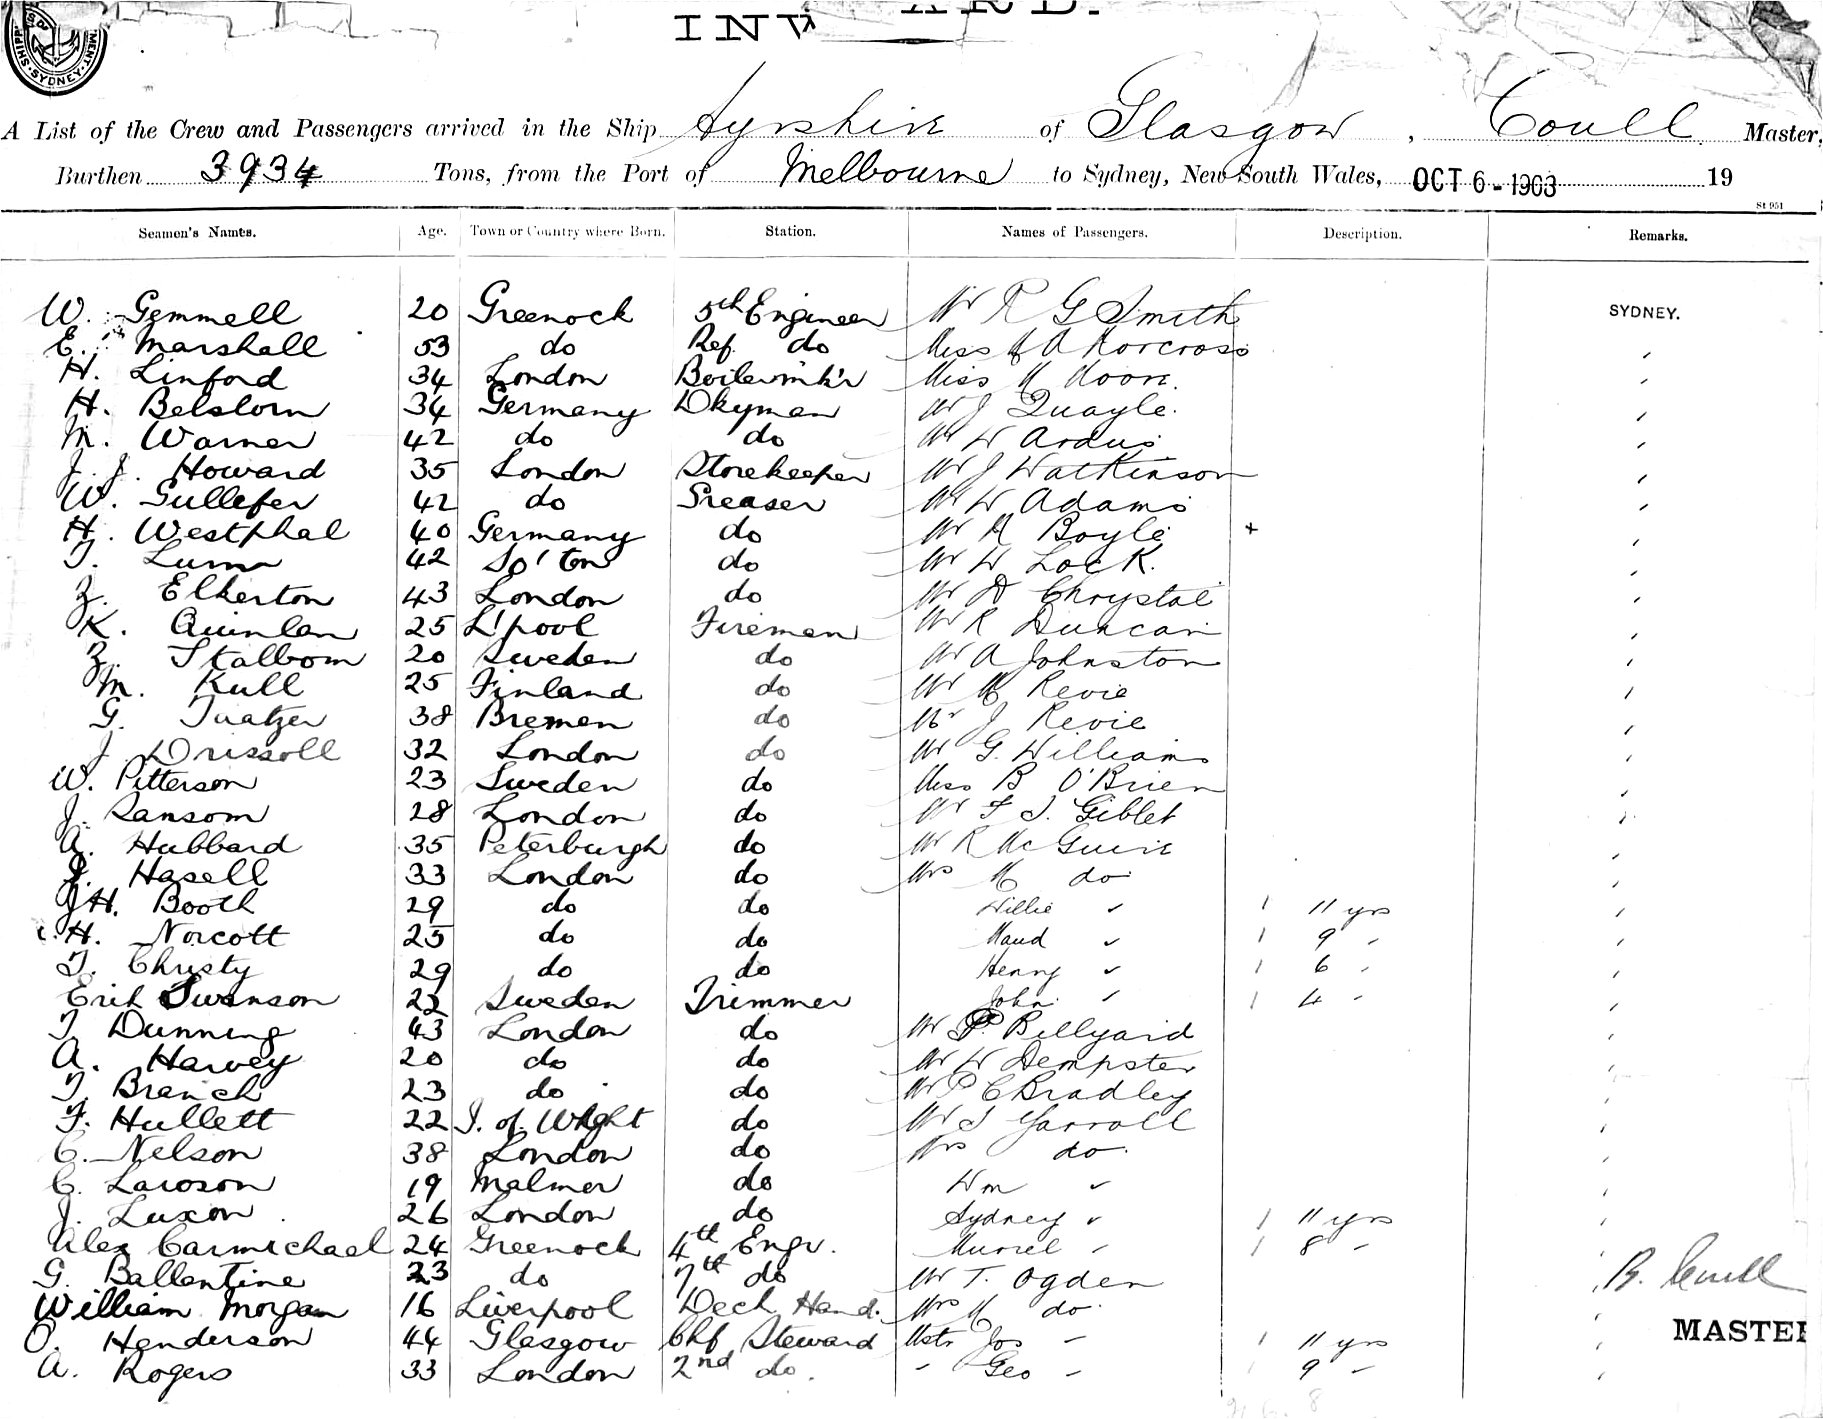 SHIPPING
SYDNEY
INW ARD.
A List of the Crew and Passengers arrived in the Ship Ayrshire of Glasgow, Coull Master,
Burthen 3934 Tons, from the Port of Melbourne to Sydney, New South Wales, OCT 6 - 1903 19
St 951
Seamen's Names. Age. Town or Country where Born. Station. Names of Passengers. Description. Remarks.
W. Gemmell 20 Greenock 5th Engineer Mr R G Smith SYDNEY.
E. Marshall 53 do Ref. do Miss A Norcross
H. Linford 34 London Boilermk'r Miss M Moore.
H. Belslorn 34 Germany Dkyman Mr J Quayle.
M. Warner 42 do do Mr W Ardus
J. J. Howard 35 London Storekeeper Mr J Watkinson
W. Gullefer 42 do Greaser Mr W Adams
H. Westphal 40 Germany do Mr H Boyle +
T. Lunn 42 So'ton do Mr W Lock.
Z. Elkerton 43 London do Mr D Chrystal
K. Quinlan 25 L'pool Fireman Mr R Duncan
Z. Stalbom 20 Sweden do Mr A Johnston
M. Kull 25 Finland do Mr Revie
G. Tuatzer 38 Bremen do Mr J Revie
J Drissoll 32 London do Mr G. Williams
W. Pitterson 23 Sweden do Miss B O'Brien
J. Ransom 28 London do Mr F J. Giblet
A. Hubbard 35 Peterburgh do Mr R McGuire
Hasell 33 London do Mrs M do
J H. Booth 29 do do Willie " 1 11 yrs
H. Norcott 25 do do Maud " 1 9 "
T. Christy 29 do do Henry " 1 6 "
Erik Swanson 22 Sweden Trimmer John " 1 4 "
T Dunning 43 London do Mr P. Billyard
A. Harvey 20 do do Mr W Dempster
T. Branch 23 do do Mr P C Bradley
F. Hullett 22 I. of Wight do Mr J Yarroll
C. Nelson 38 London do Mrs do.
C. Larsson 19 Malmer do Wm "
J. Luxon 26 London do Sydney " 1 11 yrs
Alex Carmichael 24 Greenock 4th Engr. Muriel " 1 8 "
G. Ballentine 23 do 7th do Mr T. Ogden B. Coull
William Morgan 16 Liverpool Deck Hand. Mrs M do
O. Henderson 44 Glasgow Chf Steward Mstr Jos " 1 11 yrs MASTER
A. Rogers 33 London 2nd do. " Geo " 1 9 "